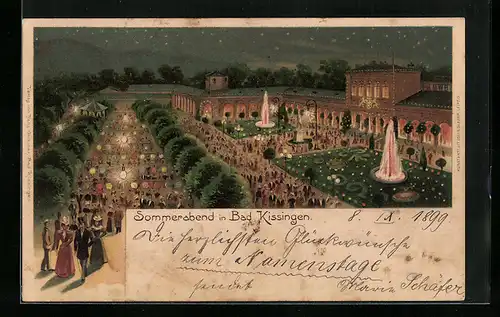 Sommerabend in Bad Kissingen.
8. IX. 1899
Die herzlichsten Glückwünsche
zum Namenstage
sendet Marie Schäfer